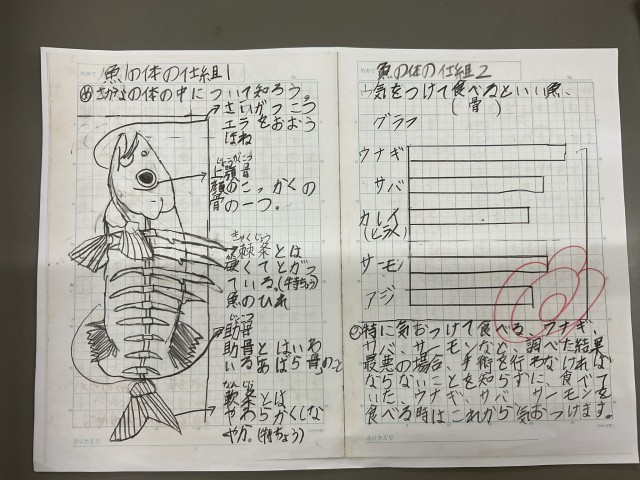 魚の体の仕組1
め さかなの体の中について知ろう。
さいがっこつ
エラをおおう
ほね
じょうがくこつ
上顎骨
顔のこっかくの
骨の一つ。
きょくじょう
棘条とは
硬くてとがっ
ている。(特ちょう)
魚のひれ
助骨
助骨とはいわ
いるあばら骨のこと
なんじょう
軟条とは
やわらかくしな
やか。(特ちょう)
ふりかえり
魚の体の仕組2
気をつけて食べるといい魚、
(骨)
グラフ
ウナギ
サバ
カレイ
(ヒラメ)
サーモン
アジ
特に気おつけて食べる、ウナギ、
サバ、サーモンなど、調べた結果
最悪の場合、手術を行わなければ
ならないことを知らずに、食べて
いた、ウナギ、サバ、サーモンを
食べる時はこれから気おつけます。
ふりかえり